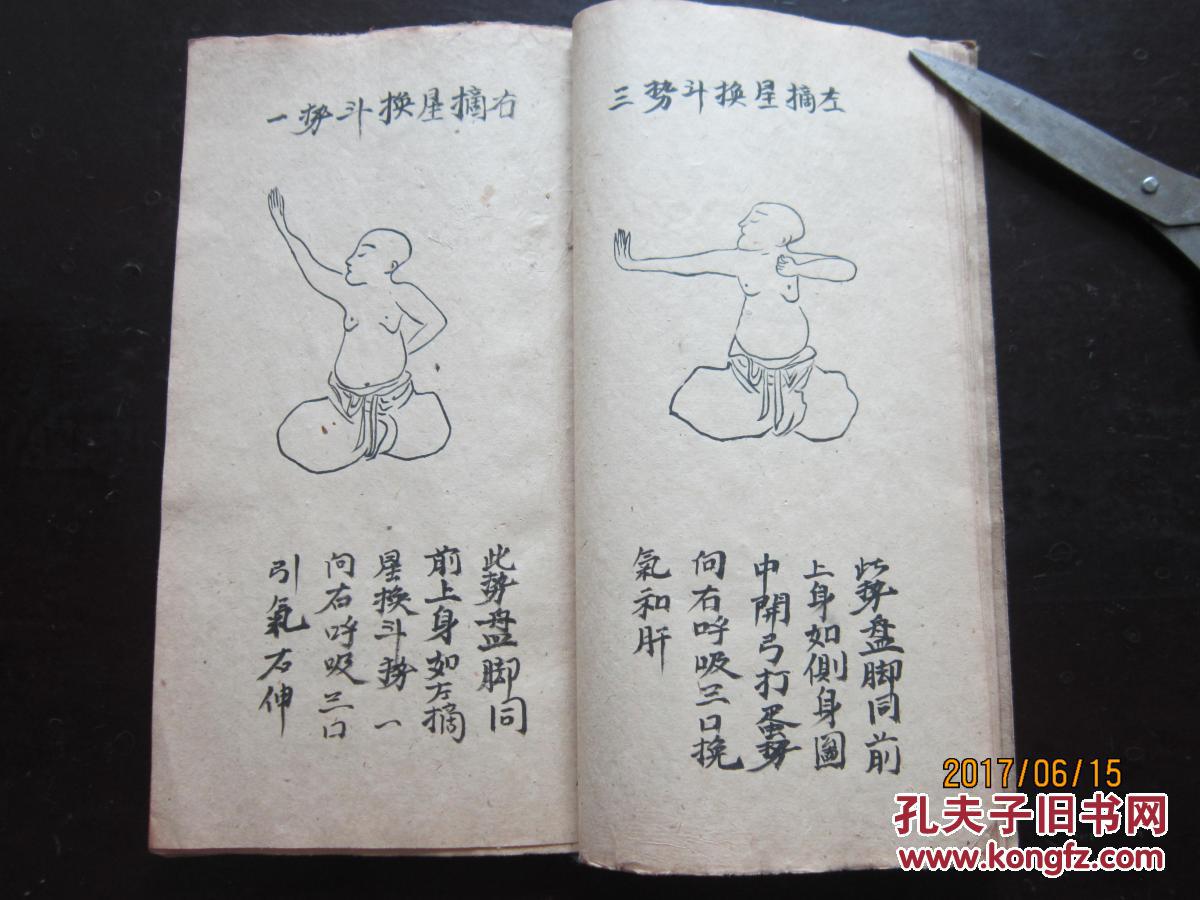 左摘星換斗势三
此势盘脚同前
上身如側身圖
中開弓打蛋势
向右呼吸三口挽
氣和肝
右摘星換斗势一
此势盘脚同
前上身如左摘
星換斗势一
向右呼吸三口
引氣右伸
2017/06/15
孔夫子旧书网
www.kongfz.com